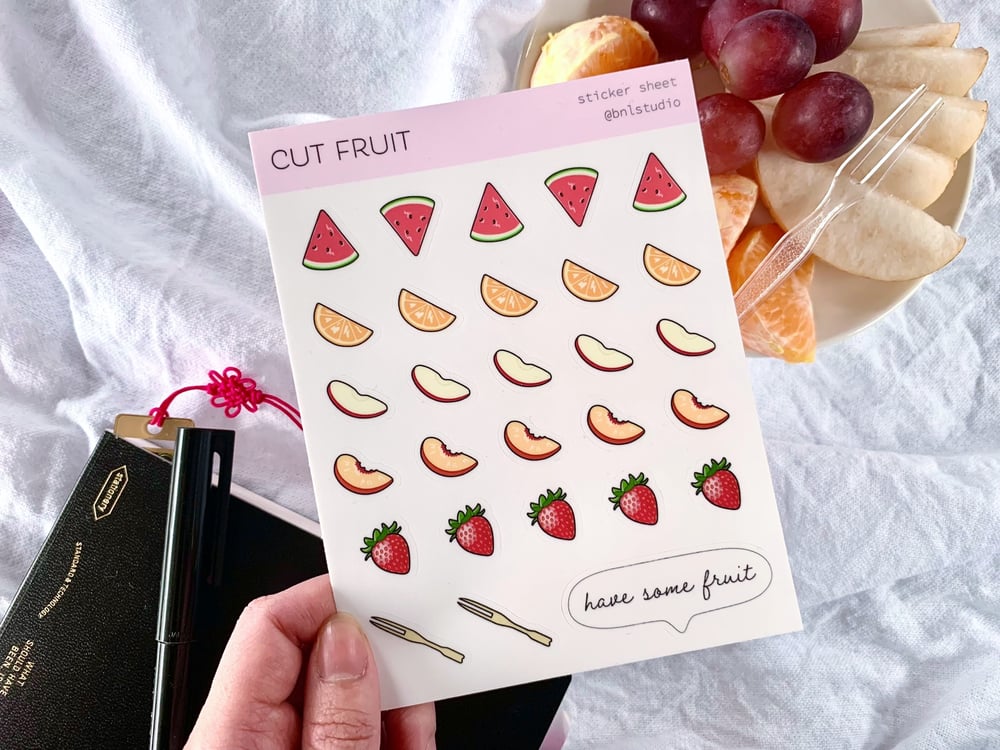 CUT FRUIT
sticker sheet
@bnlstudio
have some fruit
stationery
STANDARD & TECHNOLOGY
WHAT
SHOULD HAVE